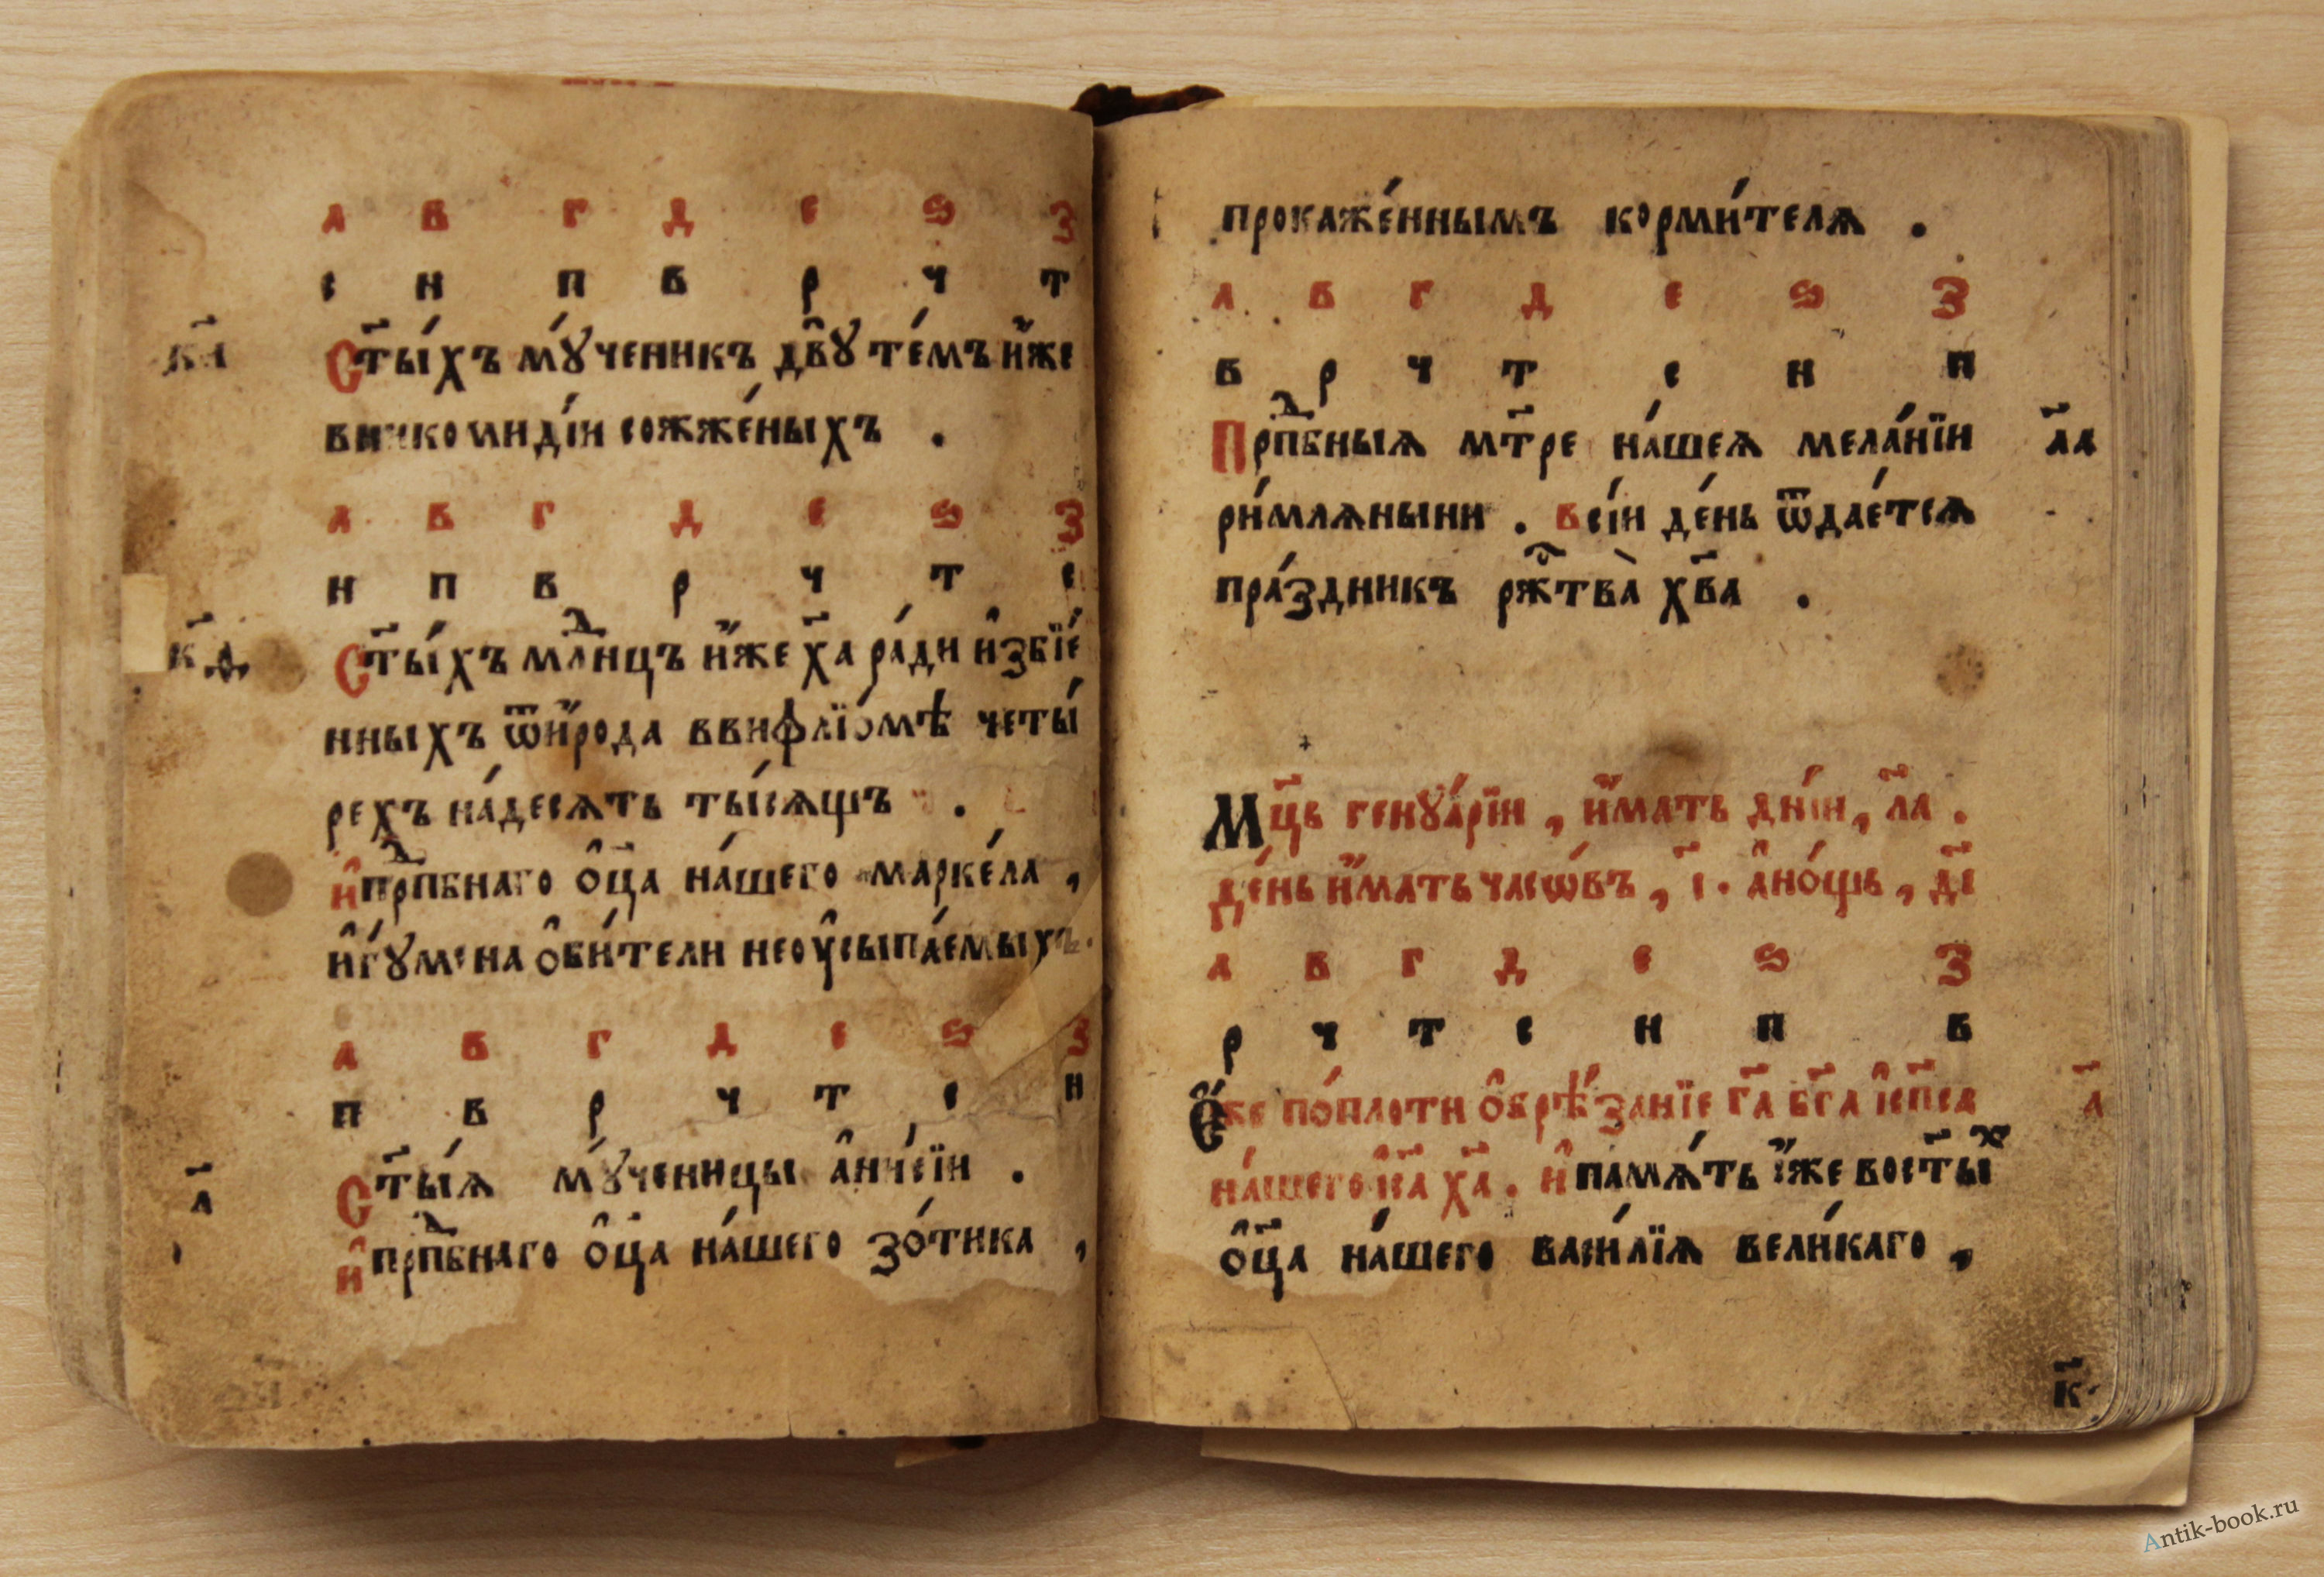 а в г д е ѕ з
с н п в р ч т
к҃и
Ст҃ы́хъ мꙋ́ченикъ двꙋ̑ те́мъ и҆̀же
вникомиді́и сожже́ныхъ .
а в г д е ѕ з
н п в р ч т с
к҃ѳ
Ст҃ы́хъ млⷣ҇нцъ и҆̀же х҃а ра́ди и҆збїе́
нныхъ ѿи҆́рода ввиѳлїо́мѣ четы́
рехъ на́десѧть ты́сѧщъ .
и҆прⷣп҇бнаго о҆ц҃а на́шего марке́ла ,
и҆гꙋ́мена о҆би́тели неоу҆сыпа́емыхъ .
а в г д е ѕ з
п в р ч т с н
л҃
Ст҃ы́ѧ мꙋ́ченицы а҆нисі́и .
и҆прⷣп҇бнаго о҆ц҃а на́шего зо́тика ,
прокаже́ннымъ корми́телѧ .
а в г д е ѕ з
в р ч т с н п
Прⷣп҇бныѧ мт҃ре на́шеѧ мела́нїи
л҃а
ри́млѧныни . всі́и де́нь ѿдае́тсѧ
пра́здникъ рж҇тⷭва̀ хв҃а .
Мц҃ъ генꙋа́рїи , и҆́мать дні́и , л҃а .
де́нь и҆́мать часѡ́въ , і҃ . а҆но́щь , д҃і
а в г д е ѕ з
р ч т с н п в
Е҆́же по́плоти о҆брѣ́занїе г҃а б҃га и҆сп҃са
а҃
на́шего і҆с҃а х҃а . и҆памѧ́ть і҆́же вост҃ыⷯ
о҆ц҃а на́шего васи́лїѧ вели́каго ,
к҃
Antik-book.ru